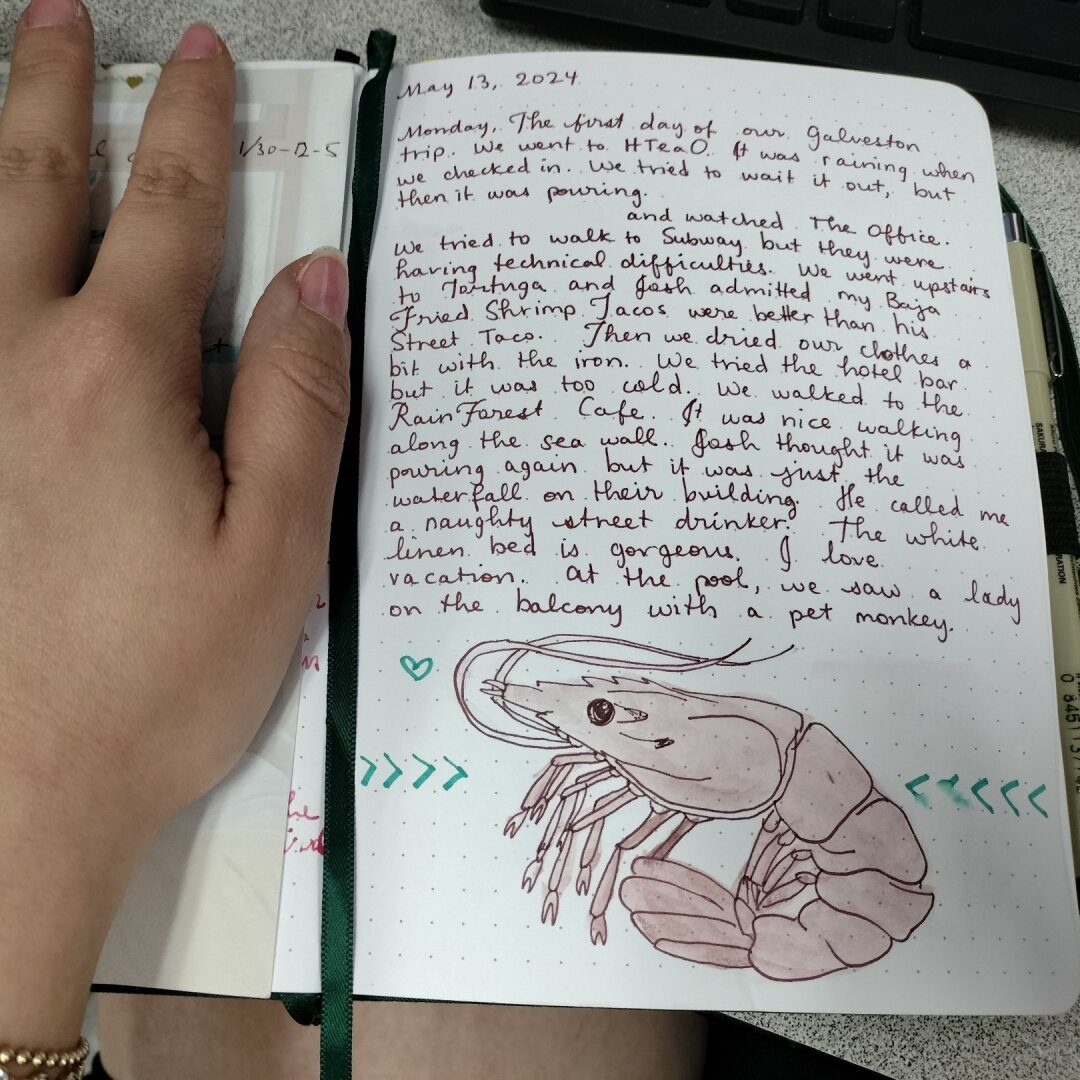 1/30-12-5
May 13, 2024
Monday, The first day of our Galveston
trip. We went to HTeaO. It was raining when
we checked in. We tried to wait it out, but
then it was pouring.
and watched The Office.
We tried to walk to Subway but they were
having technical difficulties. We went upstairs
to Tortuga and Josh admitted my Baja
Fried Shrimp Tacos were better than his
Street Taco. Then we dried our clothes a
bit with the iron. We tried the hotel bar
but it was too cold. We walked to the
RainForest Cafe. It was nice walking
along the sea wall. Josh thought it was
pouring again but it was just the
waterfall on their building. He called me
a naughty street drinker. The white
linen bed is gorgeous. I love
vacation. At the pool, we saw a lady
on the balcony with a pet monkey.
>>>>
<<<<<
SAKURA